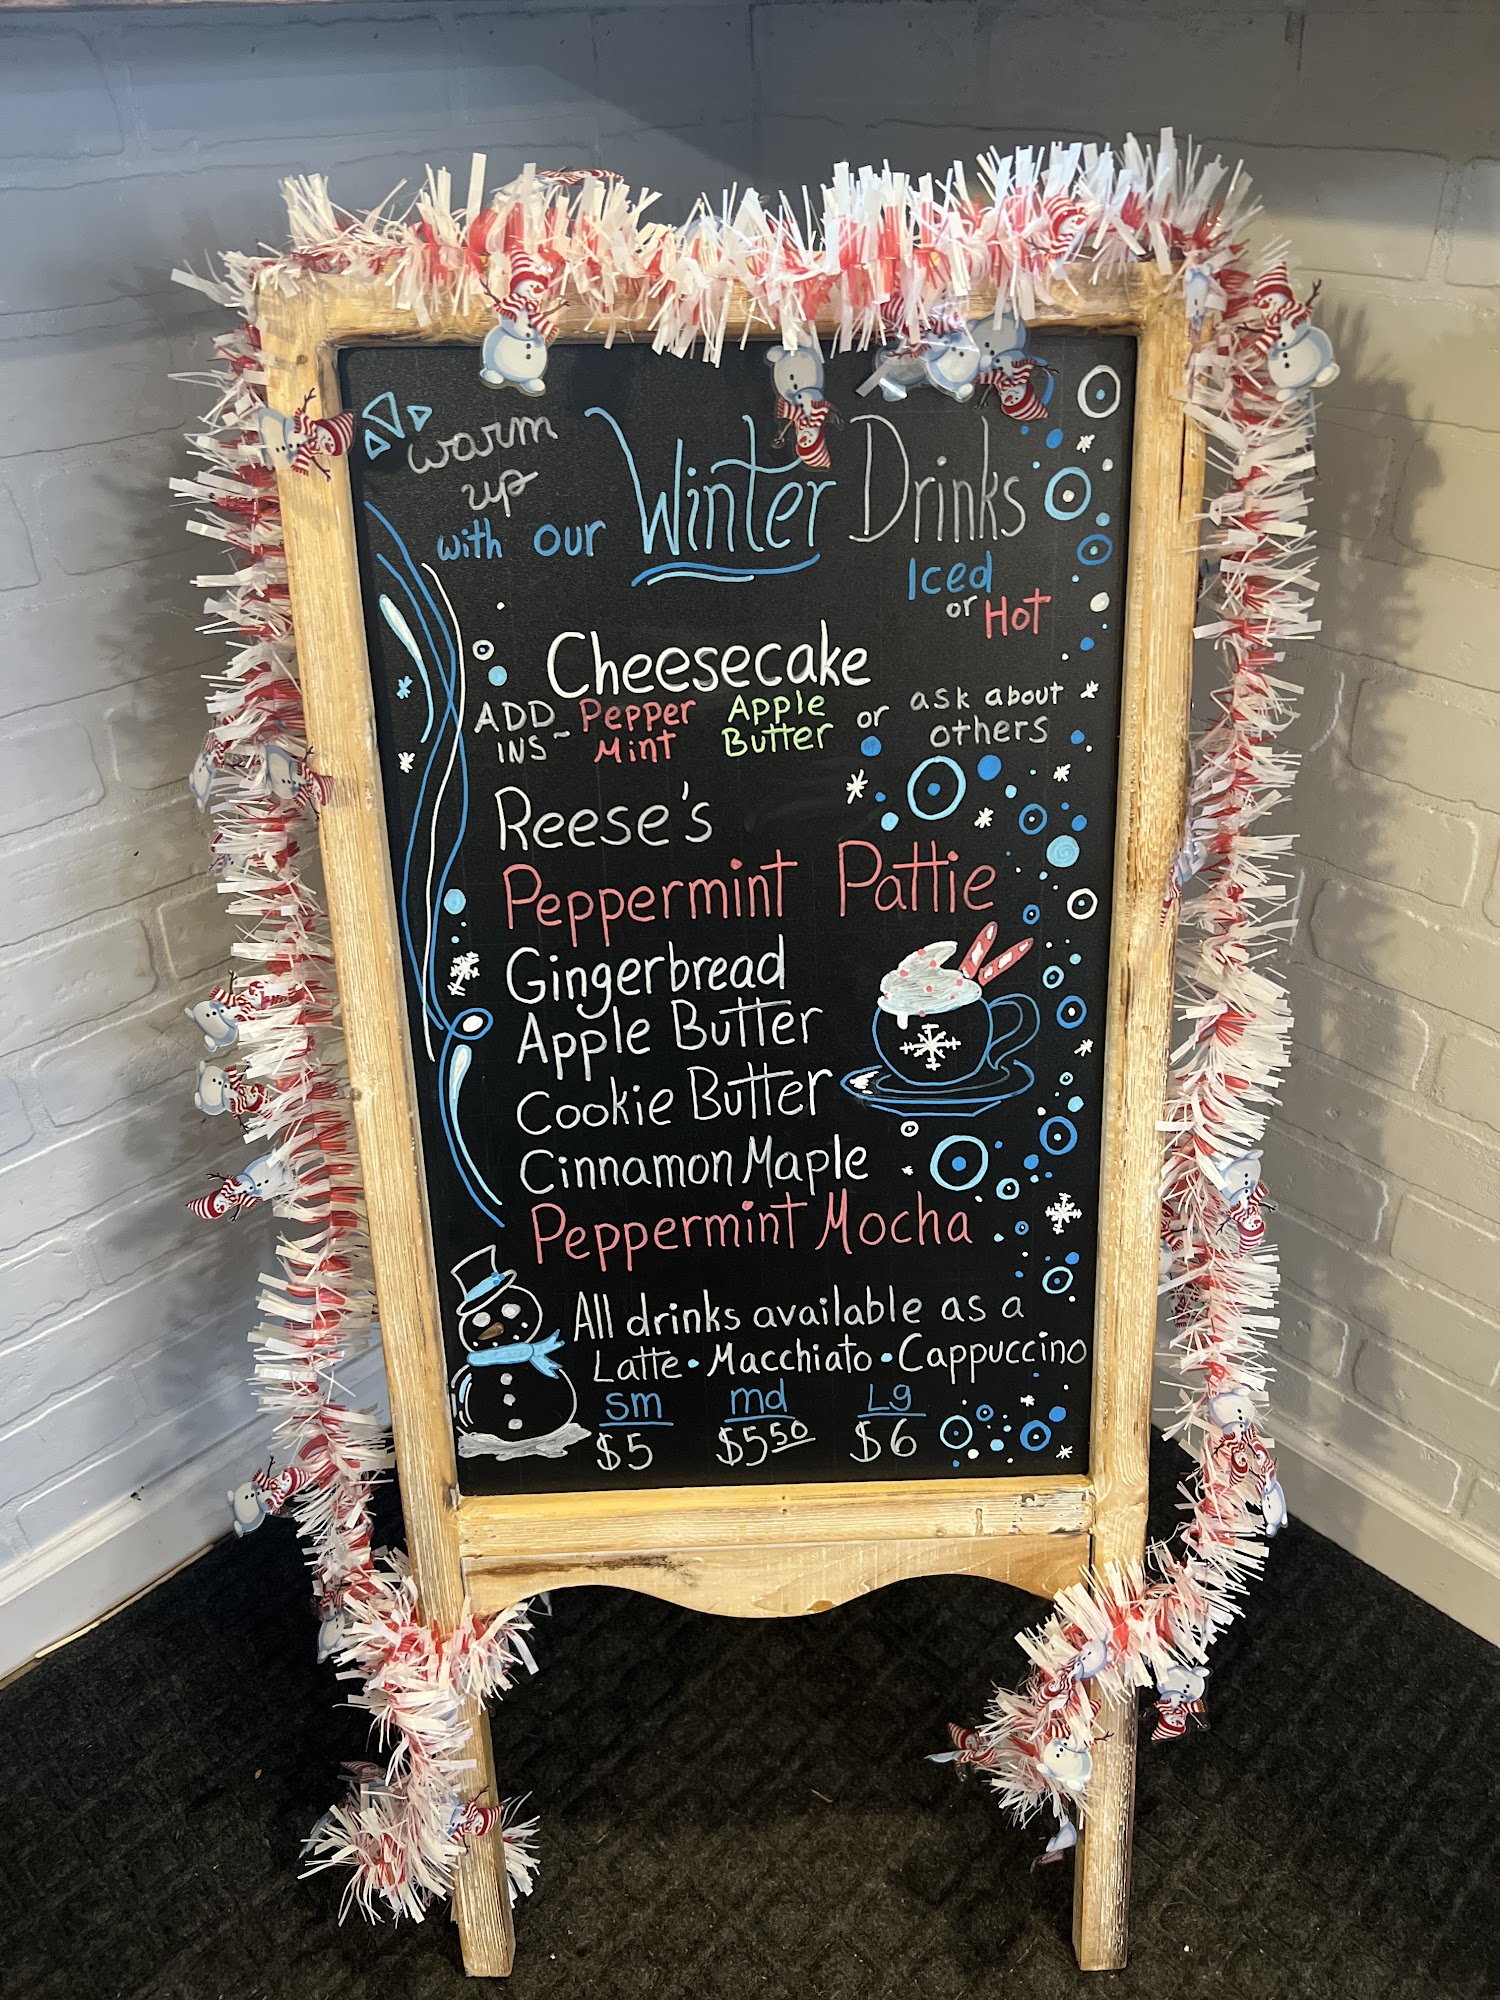 warm
up
with our Winter Drinks
Iced
or Hot
Cheesecake
ADD INS~ Pepper Mint Apple Butter or ask about others
Reese's
Peppermint Pattie
Gingerbread
Apple Butter
Cookie Butter
Cinnamon Maple
Peppermint Mocha
All drinks available as a
Latte • Macchiato • Cappuccino
sm md Lg
$5 $5 50 $6